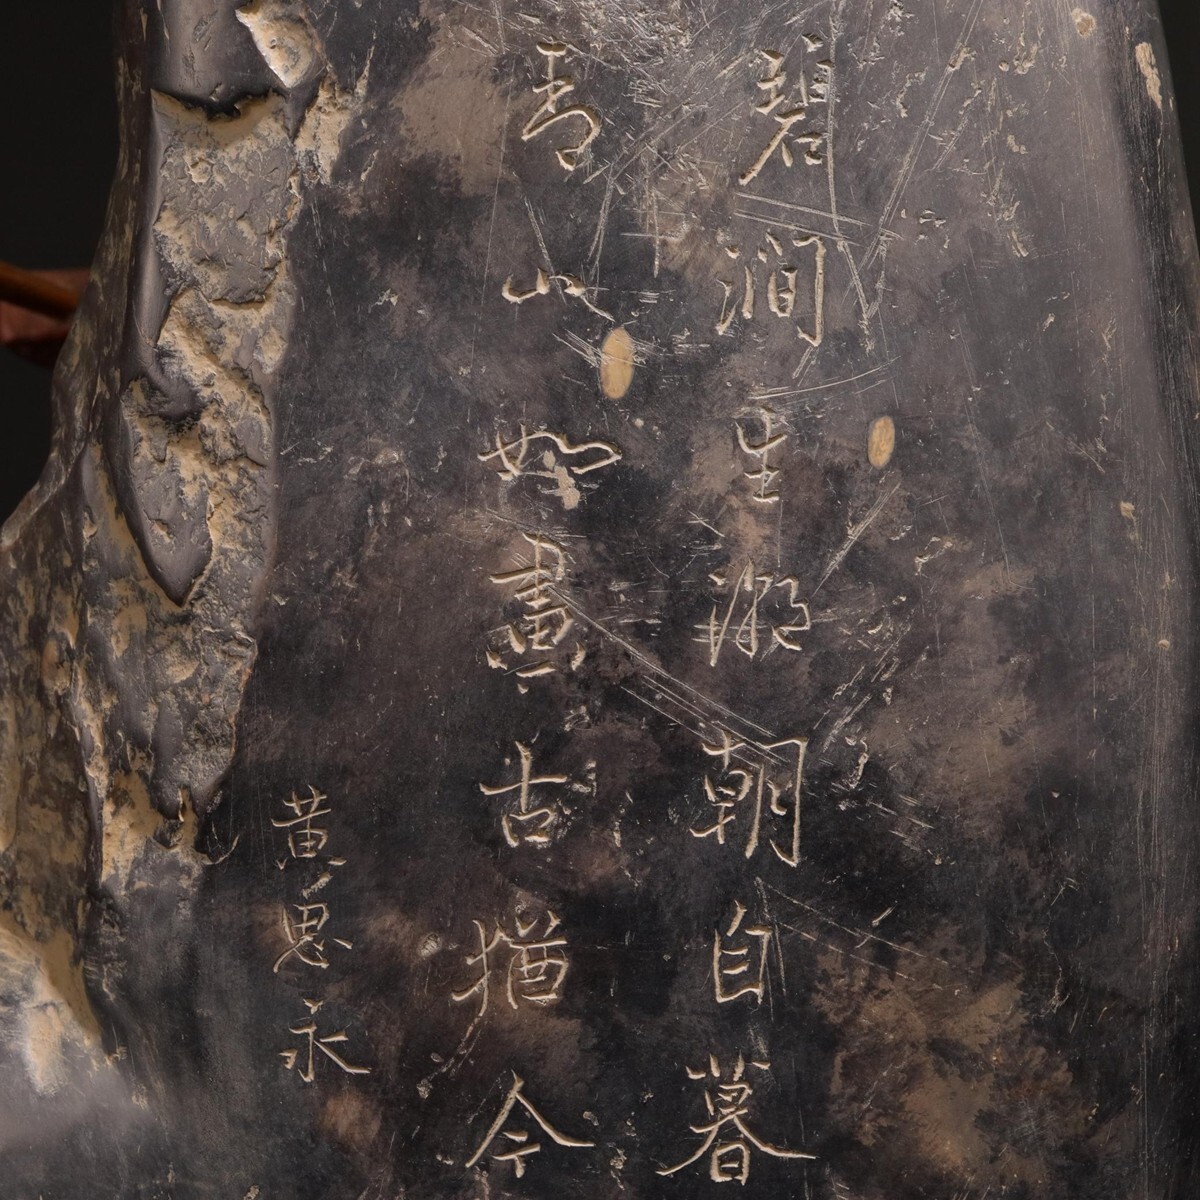 碧澗生潮朝自暮
青山如畫古猶今
黄思永